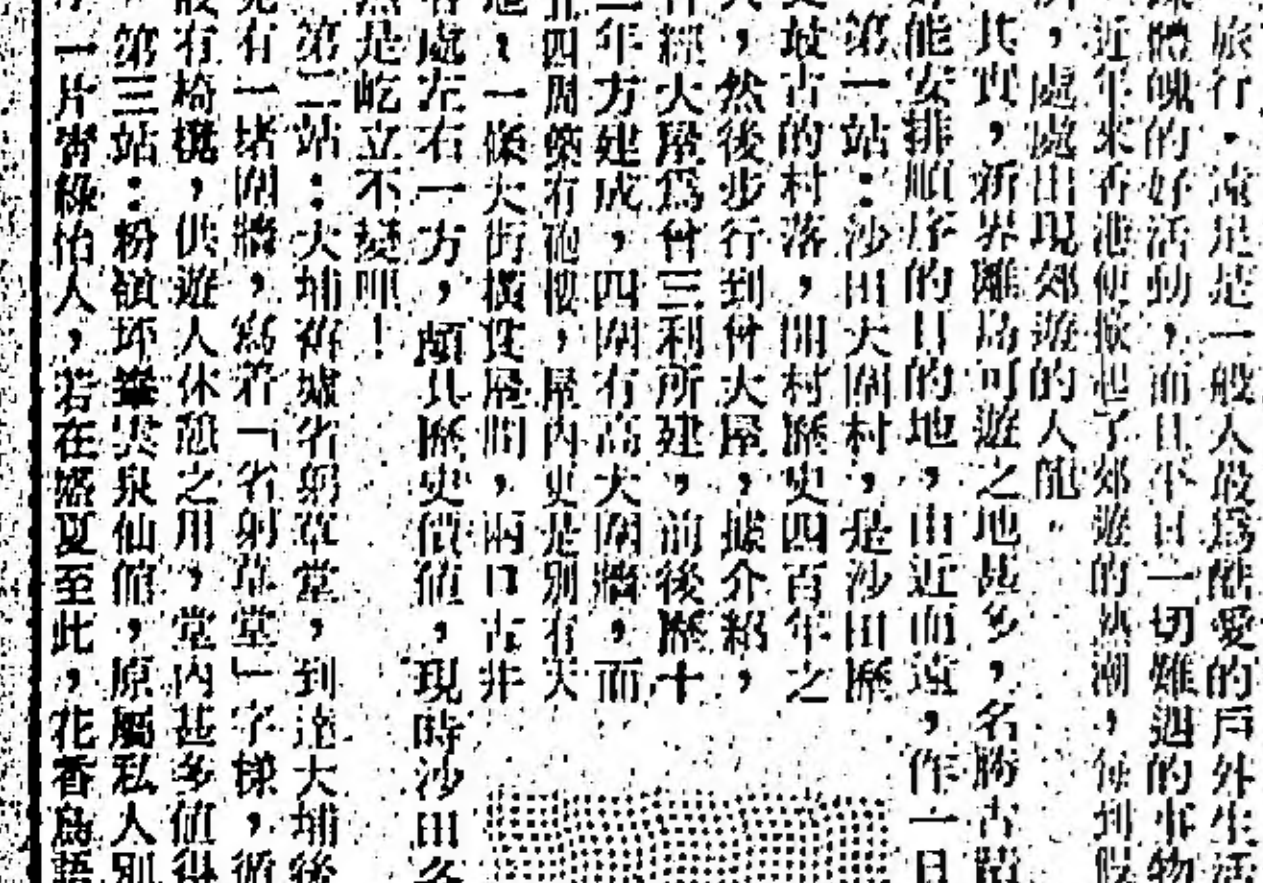 旅行。遠足是一般人最為酷愛的戶外生活
體魄的好活動,而且平日一切難遇的事物
近年來香港便掀起了郊遊的熱潮,每到假
,處處出現郊遊的人龍。
其實,新界離島可遊之地甚多,名勝古蹟
能安排順序的目的地,由近而遠,作一日
第一站:沙田大圍村,是沙田歷
史最古的村落,開村歷史四百年之
,然後步行到曾大屋,據介紹,
曾大屋為曾三利所建,前後歷十
二年方建成,四圍有高大圍牆,而
四周築有砲樓,屋內更是別有天
地,一條大街橫貫屋間,兩口古井
各處左右一方,頗具歷史價值,現時沙田
然是屹立不變哩!
第二站:大埔舊墟省躬草堂,到達大埔後
有一堵圍牆,寫着「省躬草堂」字樣,循
設有椅櫈,供遊人休憩之用,堂內甚多值得
第三站:粉嶺坪輋雲泉仙館,原屬私人別
一片青綠怡人,若在盛夏至此,花香鳥語